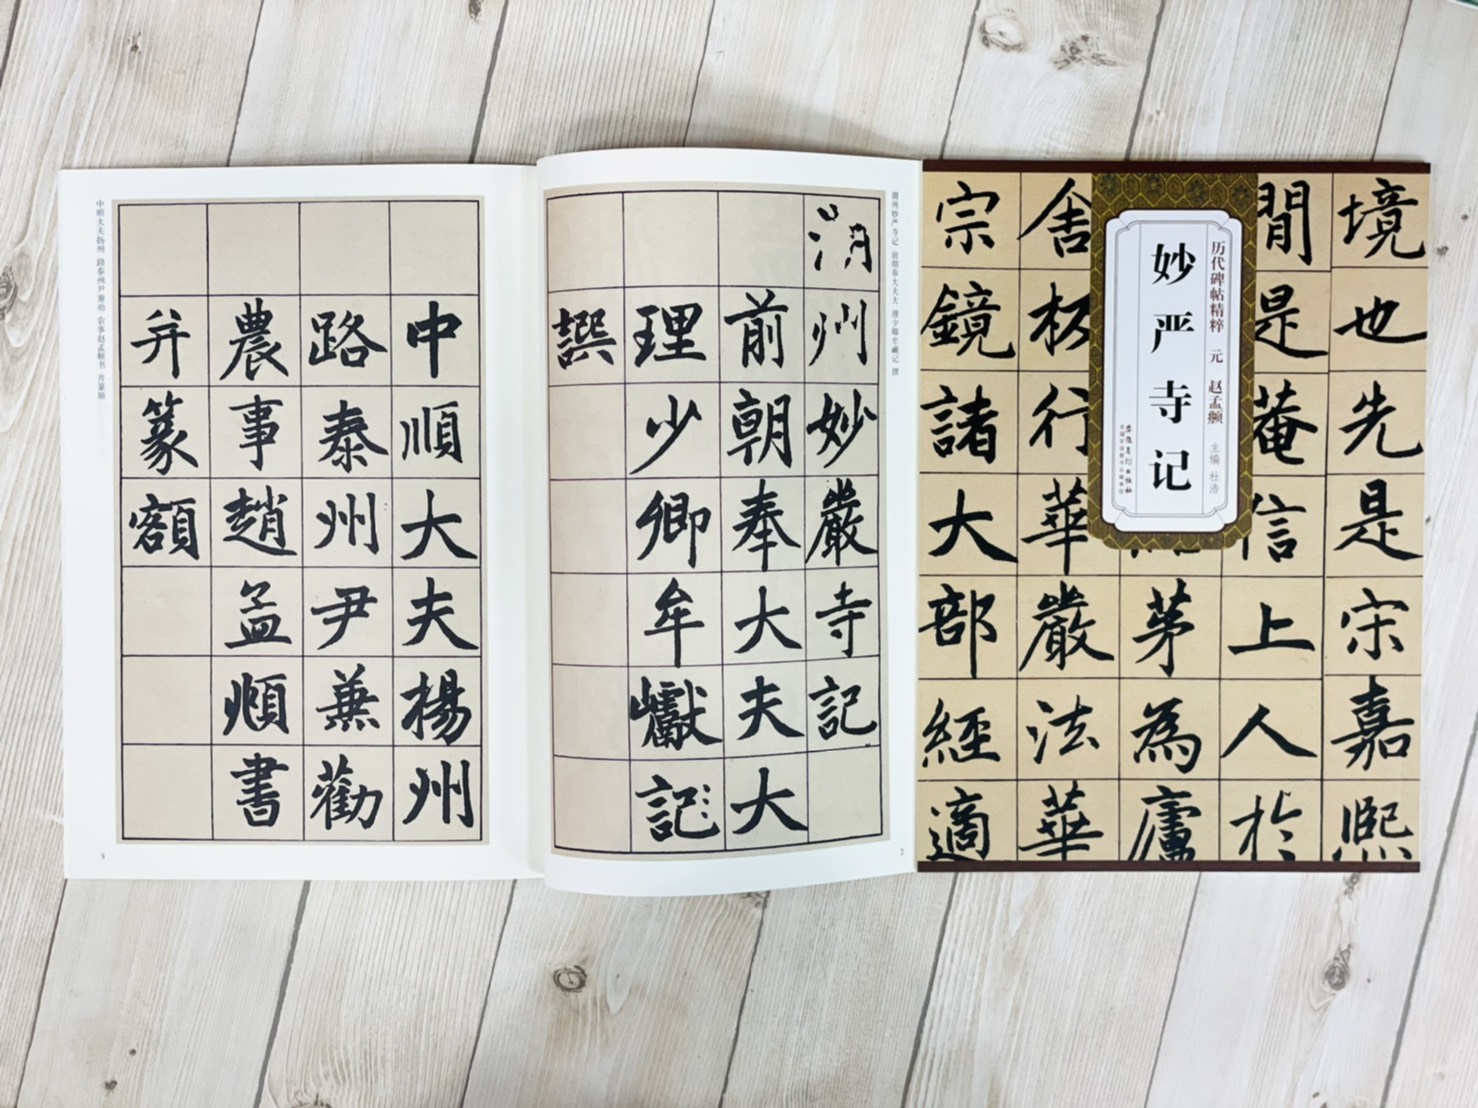 境也先是宋嘉熙
間是菴信上人於
茅為廬
舍板行華嚴法華
宗鏡諸大部經適
历代碑帖精粹 元 赵孟頫 主编 杜浩
妙严寺记
湖州妙严寺记 前朝奉大夫大 理少卿牟巘记 撰
州妙嚴寺記
前朝奉大夫大
理少卿牟巘記
譔
2
中順大夫揚州
路泰州尹兼勸
農事趙孟頫書
并篆額
中顺大夫扬州 路泰州尹兼劝 农事赵孟頫书 并篆额
3